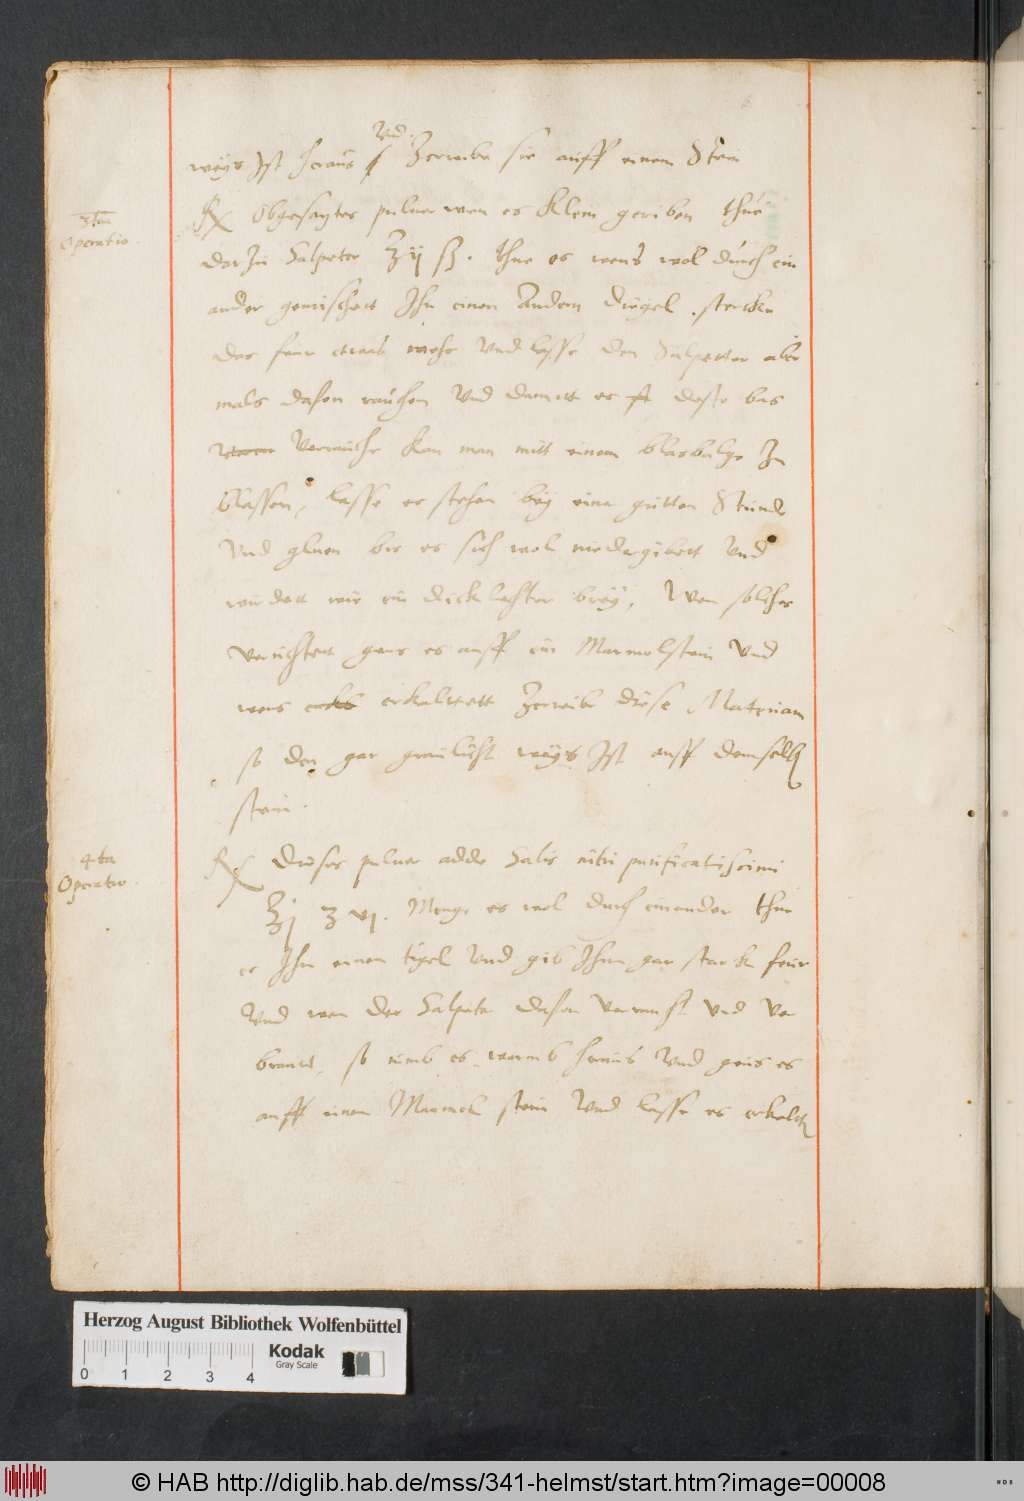 Vnd
weys Ist heraus Zerreibe sie auff einem Stein
3tia
Operatio
Rx Obgesagtes puluer wen es klein geriben thue
darzu Salpeter ℥ ij ß. thue es wens wol durch ein
ander gemischett Ihn einen Andern diegel, stercke
das feur etwas mehr Vnd lasse den Salpetter aber
mals dahon rauchen Vnd damitt es deste bas
Verrauche kan man mitt einem blasbalge Zu
blassen, lasse es stehen bey eine gutten Stunde
Vnd gluen bis es sich wol nidergibett Vnd
wirdett wie ein dicklechter brey, Wen solches
Verichtett geus es auff ein Marmolstein Vnd
wens erkaltett Zerreibe diese Materiam
so den gar graulicht weys Ist auff demselben
stein.
4ta
Operatio
Rx Dieses puluer adde Salis nitri purificatissimi
℥j ʒ vj. Menge es wol durch einander thue
es Ihn einen tigel Vnd gib Ihm gar starck feur
Vnd wen der Salpeter dahon Verraucht Vnd Ver
brant, so nimb es warmb heraus Vnd geus es
auff einen Marmel stein Vnd lasse es erkalten
Herzog August Bibliothek Wolfenbüttel
Kodak
Gray Scale
0 1 2 3 4
© HAB http://diglib.hab.de/mss/341-helmst/start.htm?image=00008